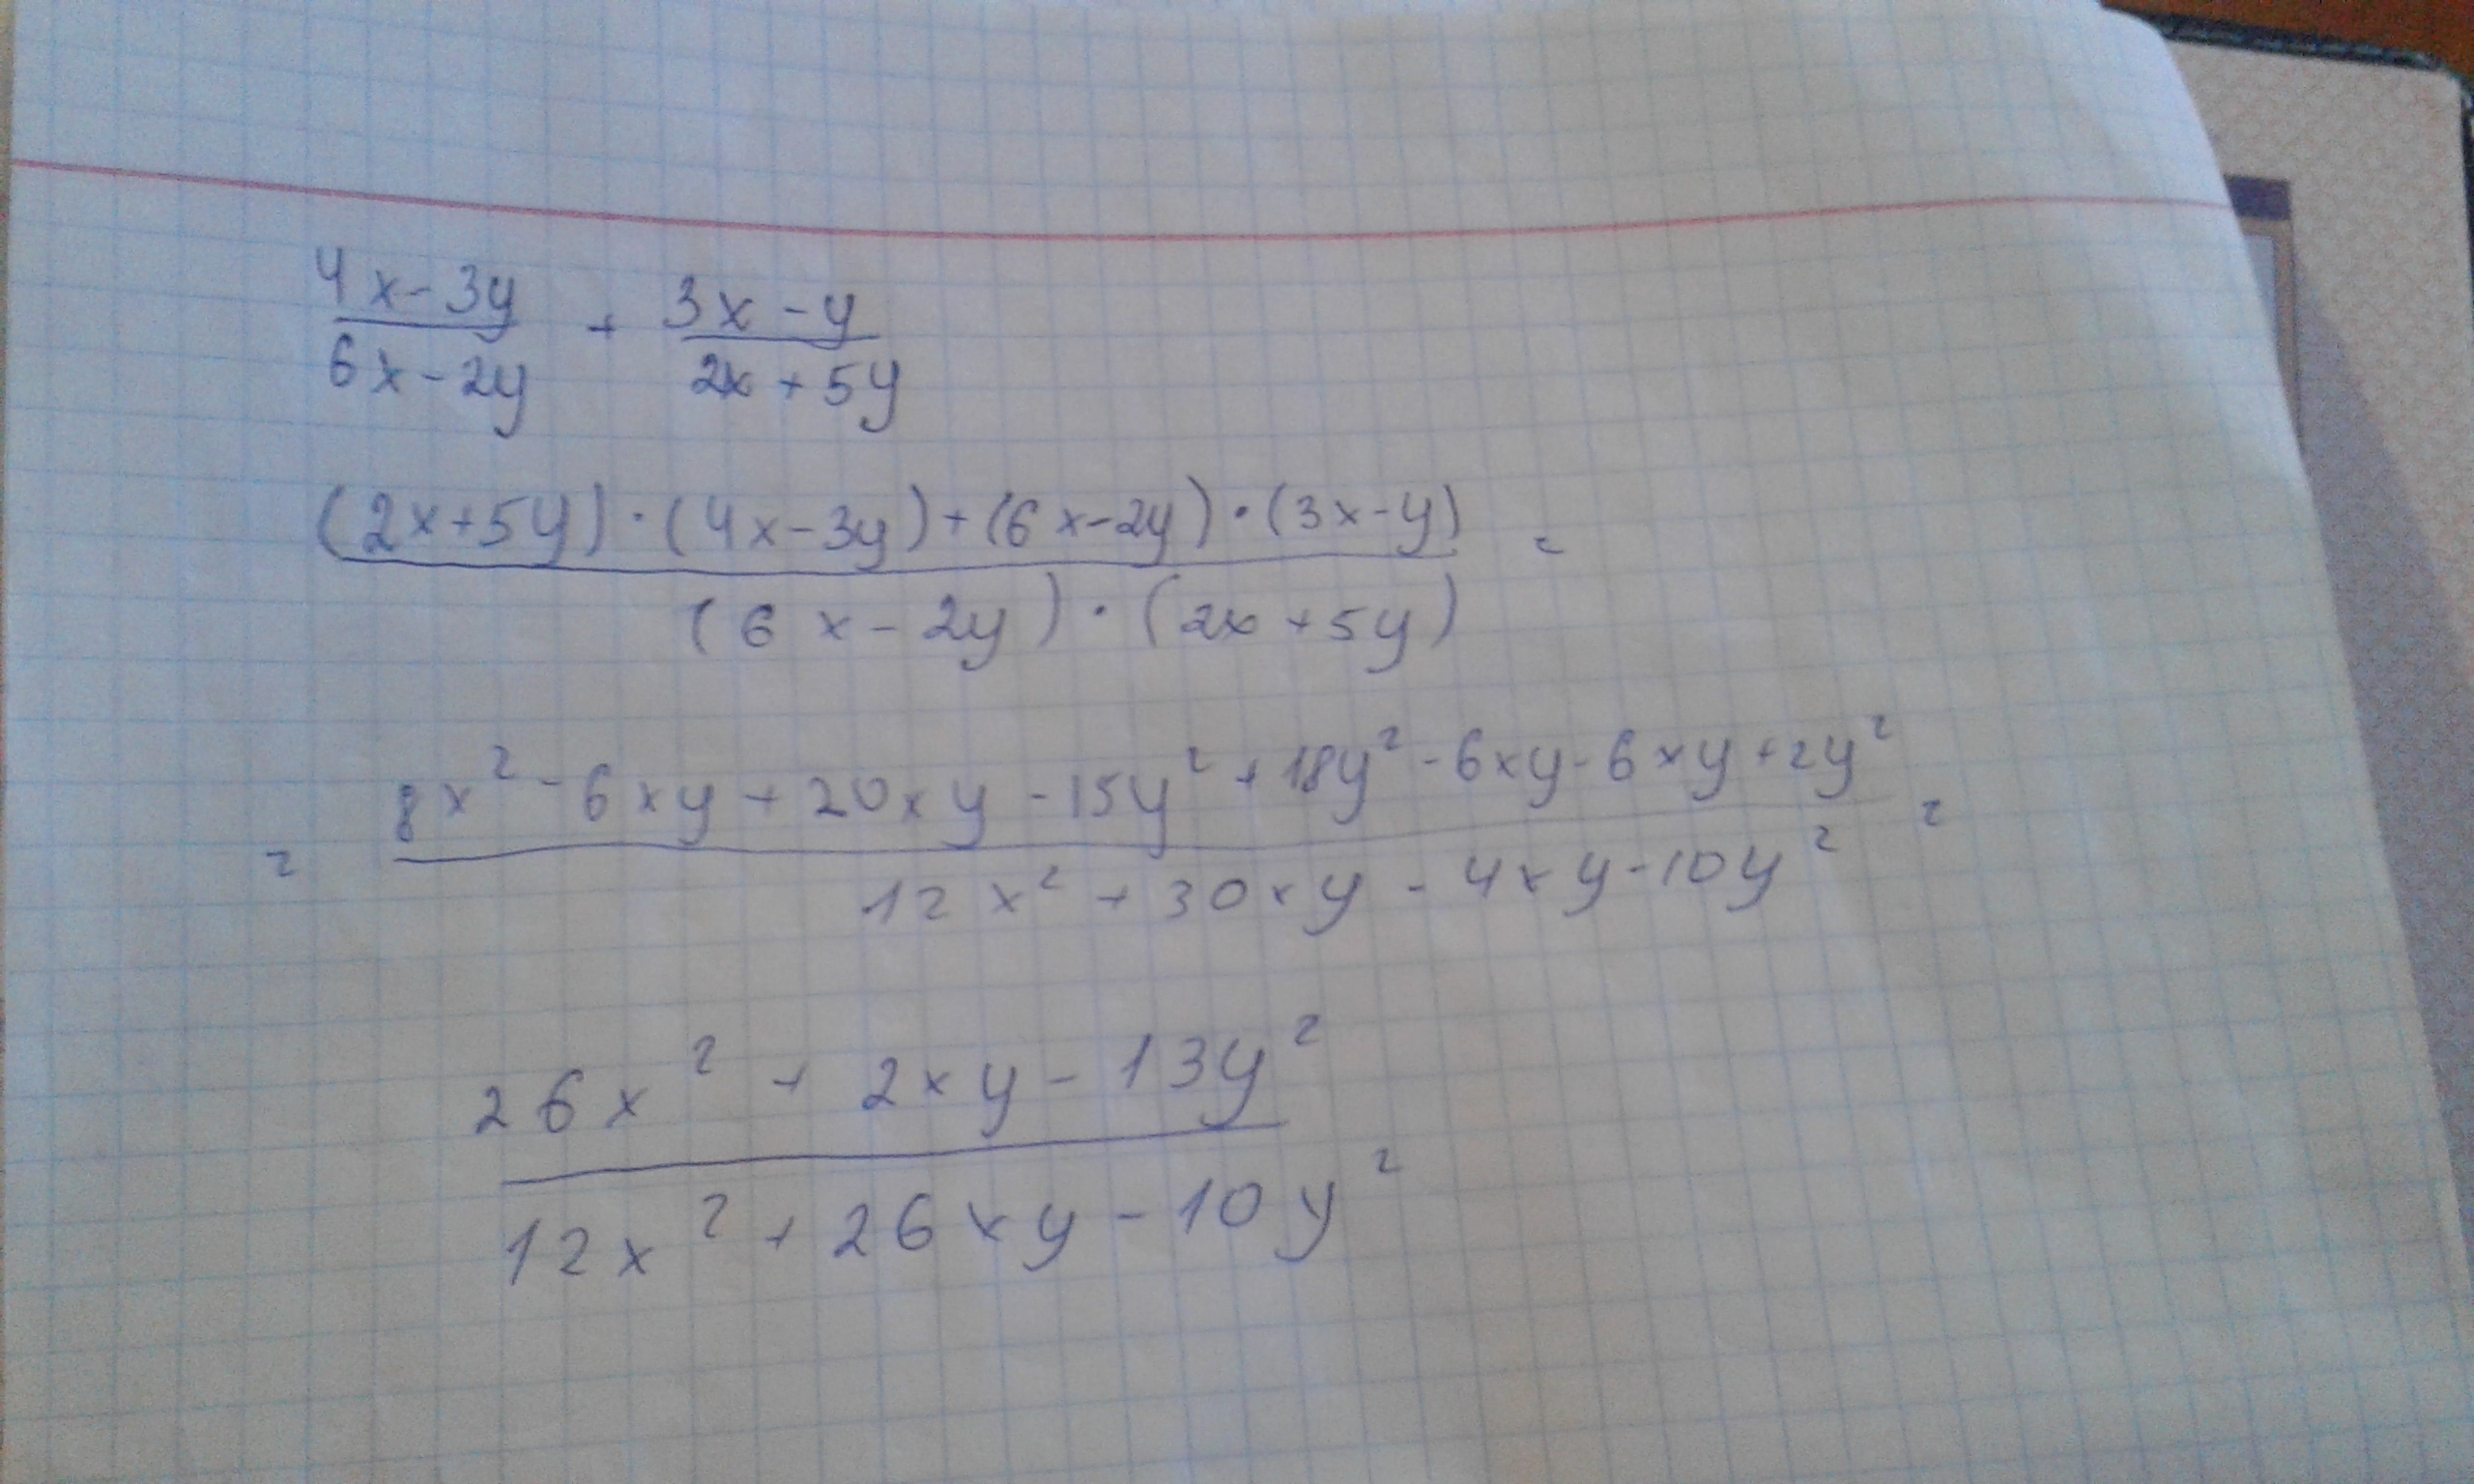 4x-3y + 3x-y
6x-2y 2x+5y
(2x+5y)·(4x-3y)+(6x-2y)·(3x-y) =
(6x-2y)·(2x+5y)
= 8x²-6xy+20xy-15y²+18y²-6xy-6xy+2y² =
12x²+30xy-4xy-10y²
26x²+2xy-13y²
12x²+26xy-10y²